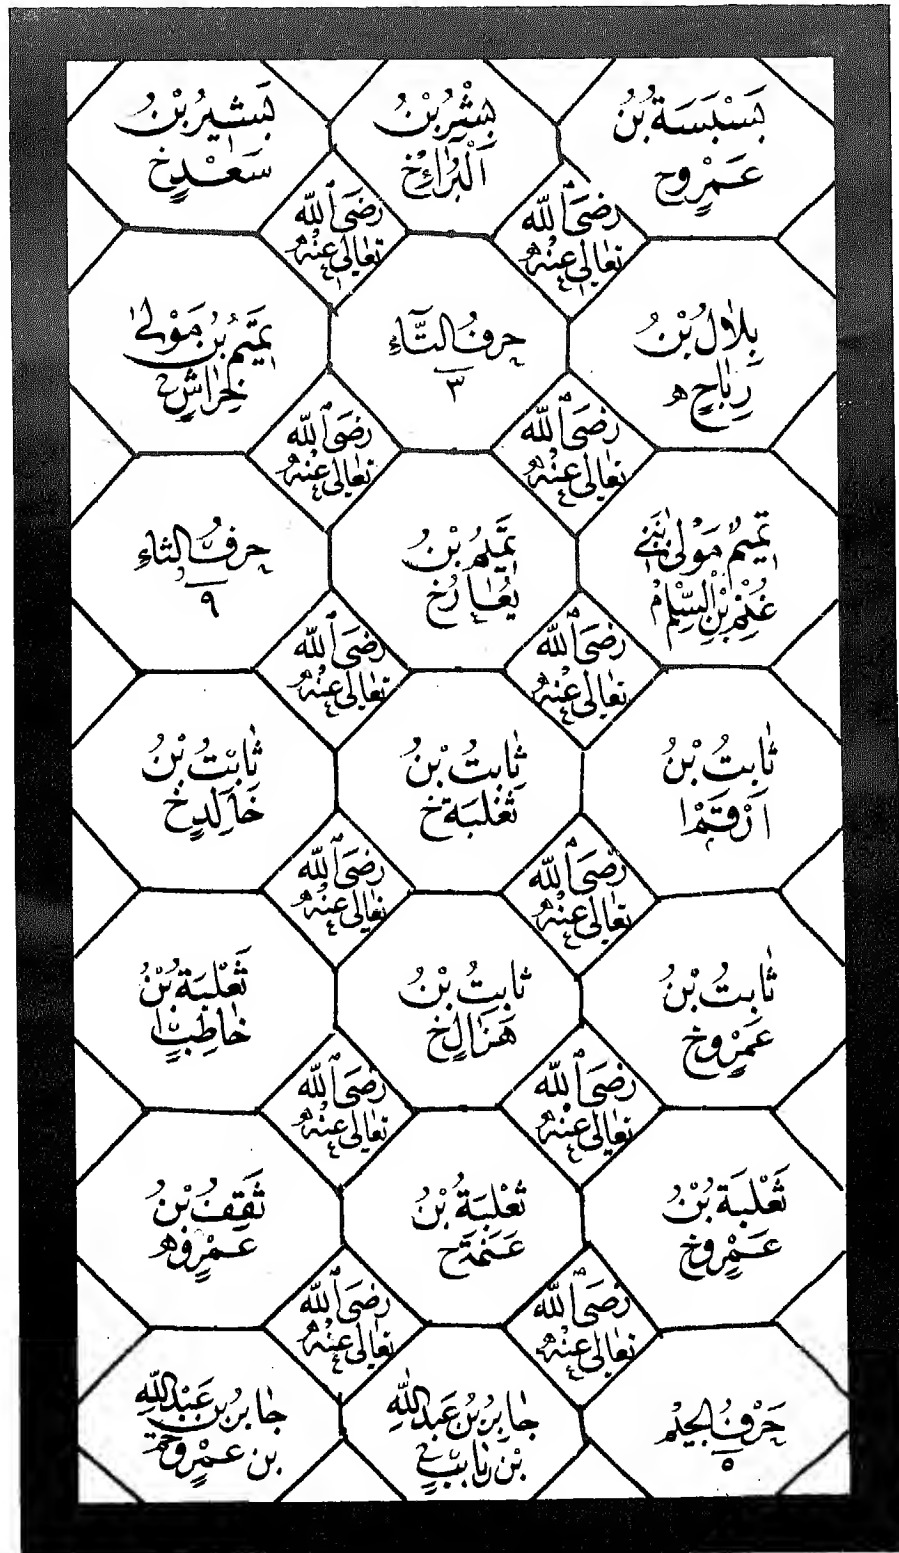 بَسْبَسَةُ بْنُ
عَمْرٍو خ
بِشْرُ بْنُ
الْبَرَاءِ خ
بَشِيرُ بْنُ
سَعْدٍ خ
رَضِيَ اللّٰه
تَعَالٰى عَنْهُ
رَضِيَ اللّٰه
تَعَالٰى عَنْهُ
بِلَالُ بْنُ
رَبَاحٍ ھ
حرفُ التَّاءِ
٣
تَمِيمُ بْنُ مَوْلٰى
خِرَاشٍ
رَضِيَ اللّٰه
تَعَالٰى عَنْهُ
رَضِيَ اللّٰه
تَعَالٰى عَنْهُ
تَمِيمٌ مَوْلٰى بَنِي
غُنْمِ بْنِ السِّلْمِ
تَمِيمُ بْنُ
يُعَارُ خ
حرفُ الثاءِ
٩
رَضِيَ اللّٰه
تَعَالٰى عَنْهُ
رَضِيَ اللّٰه
تَعَالٰى عَنْهُ
ثَابِتُ بْنُ
اَرْقَمْ ا
ثَابِتُ بْنُ
ثَعْلَبَةَ خ
ثَابِتُ بْنُ
خَالِدٍ خ
رَضِيَ اللّٰه
تَعَالٰى عَنْهُ
رَضِيَ اللّٰه
تَعَالٰى عَنْهُ
ثَابِتُ بْنُ
عَمْرٍو خ
ثَابِتُ بْنُ
هَزَالٍ خ
ثَعْلَبَةُ بْنُ
حَاطِبٍ ا
رَضِيَ اللّٰه
تَعَالٰى عَنْهُ
رَضِيَ اللّٰه
تَعَالٰى عَنْهُ
ثَعْلَبَةُ بْنُ
عَمْرٍو خ
ثَعْلَبَةُ بْنُ
عَنَمَةَ خ
ثَقِفُ بْنُ
عَمْرٍو ھ
رَضِيَ اللّٰه
تَعَالٰى عَنْهُ
رَضِيَ اللّٰه
تَعَالٰى عَنْهُ
حَرْفُ الجيم
٥
جَابِرُ بْنُ عَبْدِ اللّٰهِ
بْنِ رِيَابٍ خ
جَابِرُ بْنُ عَبْدِ اللّٰهِ
بن عَمْرٍو خ